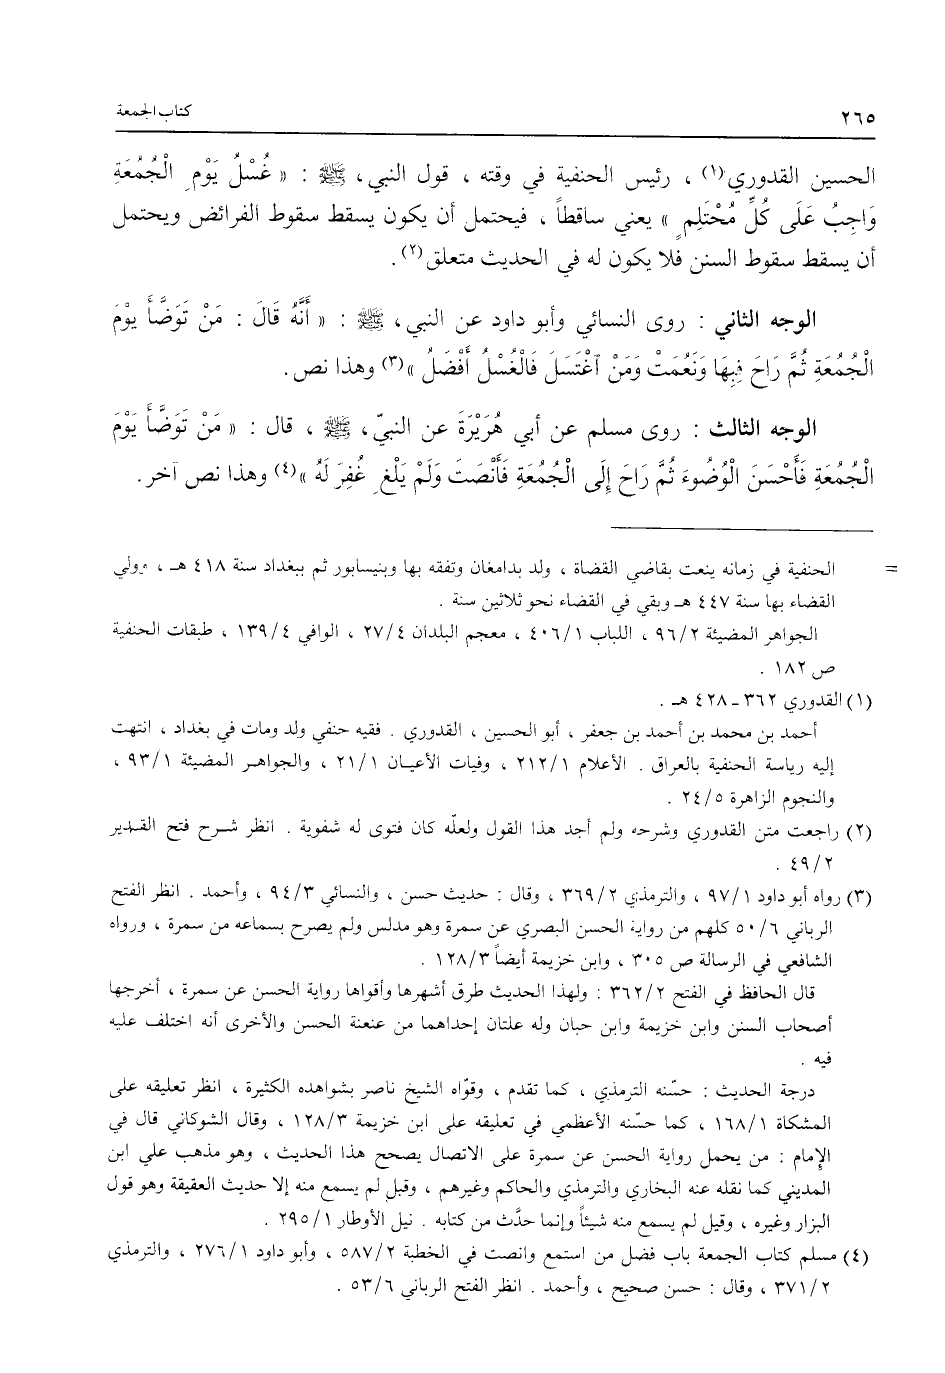 ٢٦٥
كتاب الجمعة
الحسين القدوري(١) ، رئيس الحنفية في وقته ، قول النبي، ﷺ : « غُسْلُ يَوْمِ الْجُمُعَةِ
وَاجِبُ عَلَى كُلِّ مُحْتَلِمٍ » يعني ساقطاً ، فيحتمل أن يكون يسقط سقوط الفرائض ويحتمل
أن يسقط سقوط السنن فلا يكون له في الحديث متعلق(٢) .
الوجه الثاني : روى النسائي وأبو داود عن النبي، ﷺ : « أَنَّهُ قَالَ : مَنْ تَوَضَّأَ يوْمَ
الْجُمُعَةِ ثُمَّ رَاحَ فَبِهَا وَنَعُمَتْ وَمَنْ اغْتَسَلَ فَالْغُسْلُ أَفْضَلُ »(٣) وهذا نص .
الوجه الثالث : روى مسلم عن أبي هُرَيْرَةَ عن النبيّ، ﷺ ، قال : « مَنْ تَوَضَّأَ يَوْمَ
الْجُمُعَةِ فَأَحْسَنَ الْوُضُوءَ ثُمَّ رَاحَ إِلَى الْجُمُعَةِ فَأَنْصَتَ وَلَمْ يَلْغِ غُفِرَ لَهُ »(٤) وهذا نص آخر .
= الحنفية في زمانه ينعت بقاضي القضاة ، ولد بدامغان وتفقه بها وبنيسابور ثم ببغداد سنة ٤١٨ هـ ، وولي
القضاء بها سنة ٤٤٧ هـ وبقي في القضاء نحو ثلاثين سنة .
الجواهر المضيئة ٩٦/٢ ، اللباب ٤٠٦/١ ، معجم البلدان ٢٧/٤ ، الوافي ١٣٩/٤ ، طبقات الحنفية
ص ١٨٢ .
(١) القدوري ٣٦٢ - ٤٢٨ هـ .
أحمد بن محمد بن أحمد بن جعفر ، أبو الحسين ، القدوري . فقيه حنفي ولد ومات في بغداد ، انتهت
إليه رياسة الحنفية بالعراق . الأعلام ٢١٢/١ ، وفيات الأعيان ٢١/١ ، والجواهر المضيئة ٩٣/١ ،
والنجوم الزاهرة ٢٤/٥ .
(٢) راجعت متن القدوري وشرحه ولم أجد هذا القول ولعلّه كان فتوى له شفوية . انظر شرح فتح القدير
٤٩/٢ .
(٣) رواه أبو داود ٩٧/١ ، والترمذي ٣٦٩/٢ ، وقال : حديث حسن ، والنسائي ٩٤/٣ ، وأحمد . انظر الفتح
الرباني ٥٠/٦ كلهم من رواية الحسن البصري عن سمرة وهو مدلس ولم يصرح بسماعه من سمرة ، ورواه
الشافعي في الرسالة ص ٣٠٥ ، وابن خزيمة أيضاً ١٢٨/٣ .
قال الحافظ في الفتح ٣٦٢/٢ : ولهذا الحديث طرق أشهرها وأقواها رواية الحسن عن سمرة ، أخرجها
أصحاب السنن وابن خزيمة وابن حبان وله علتان إحداهما من عنعنة الحسن والأخرى أنه اختلف عليه
فيه .
درجة الحديث : حسّنه الترمذي ، كما تقدم ، وقوّاه الشيخ ناصر بشواهده الكثيرة ، انظر تعليقه على
المشكاة ١٦٨/١ ، كما حسّنه الأعظمي في تعليقه على ابن خزيمة ١٢٨/٣ ، وقال الشوكاني قال في
الإمام : من يحمل رواية الحسن عن سمرة على الاتصال يصحح هذا الحديث ، وهو مذهب علي ابن
المديني كما نقله عنه البخاري والترمذي والحاكم وغيرهم ، وقيل لم يسمع منه إلا حديث العقيقة وهو قول
البزار وغيره ، وقيل لم يسمع منه شيئاً وإنما حدَّث من كتابه . نيل الأوطار ٢٩٥/١ .
(٤) مسلم كتاب الجمعة باب فضل من استمع وانصت في الخطبة ٥٨٧/٢ ، وأبو داود ٢٧٦/١ ، والترمذي
٣٧١/٢ ، وقال : حسن صحيح ، وأحمد . انظر الفتح الرباني ٥٣/٦ .